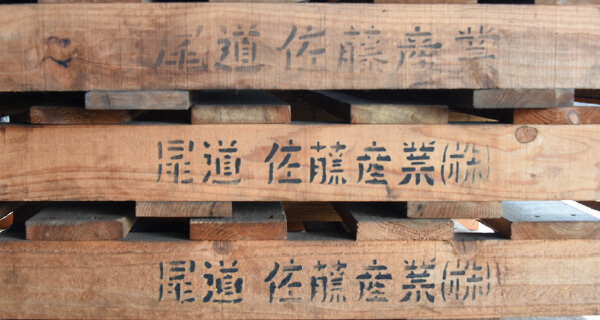 尾道 佐藤産業
尾道 佐藤産業㈱
尾道 佐藤産業㈱